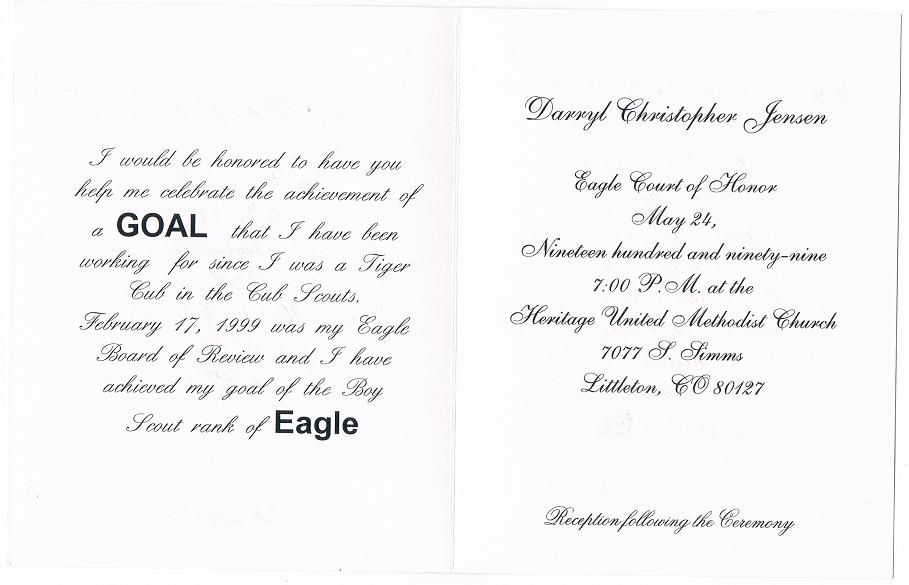 I would be honored to have you
help me celebrate the achievement of
a GOAL that I have been
working for since I was a Tiger
Cub in the Cub Scouts.
February 17, 1999 was my Eagle
Board of Review and I have
achieved my goal of the Boy
Scout rank of Eagle
Darryl Christopher Jensen
Eagle Court of Honor
May 24,
Nineteen hundred and ninety-nine
7:00 P.M. at the
Heritage United Methodist Church
7077 S. Simms
Littleton, CO 80127
Reception following the Ceremony